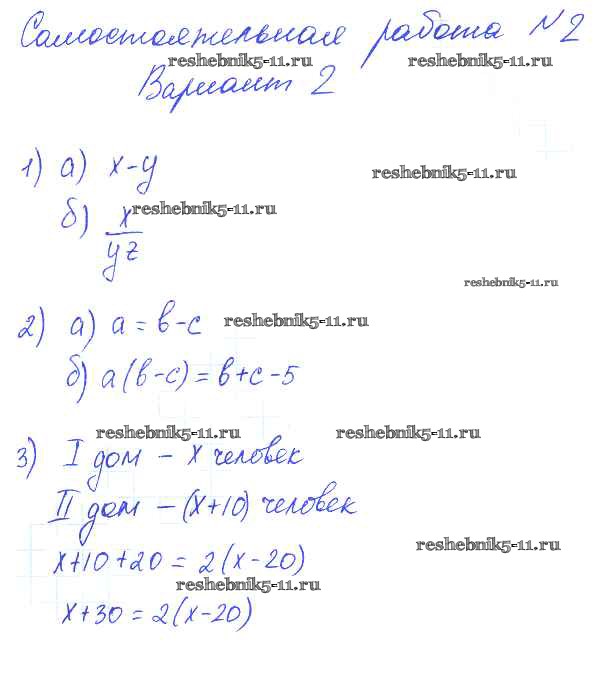 Самостоятельная работа №2
reshebnik5-11.ru reshebnik5-11.ru
Вариант 2
1) а) x-y
reshebnik5-11.ru
б) x/yz
reshebnik5-11.ru
reshebnik5-11.ru
2) а) a = b-c
reshebnik5-11.ru
б) a(b-c) = b+c-5
reshebnik5-11.ru reshebnik5-11.ru
3) I дом - x человек
II дом - (x+10) человек
x+10+20 = 2(x-20)
reshebnik5-11.ru
reshebnik5-11.ru
x+30 = 2(x-20)